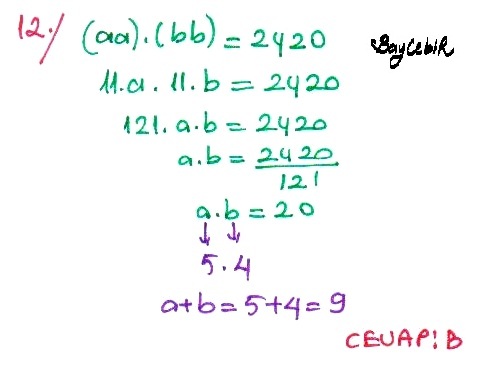 12./ (aa).(bb) = 2420 BayCebiR
11.a. 11.b = 2420
121. a.b = 2420
a.b = 2420/121
a.b = 20
↓ ↓
5.4
a+b = 5+4 = 9
CEVAP: B